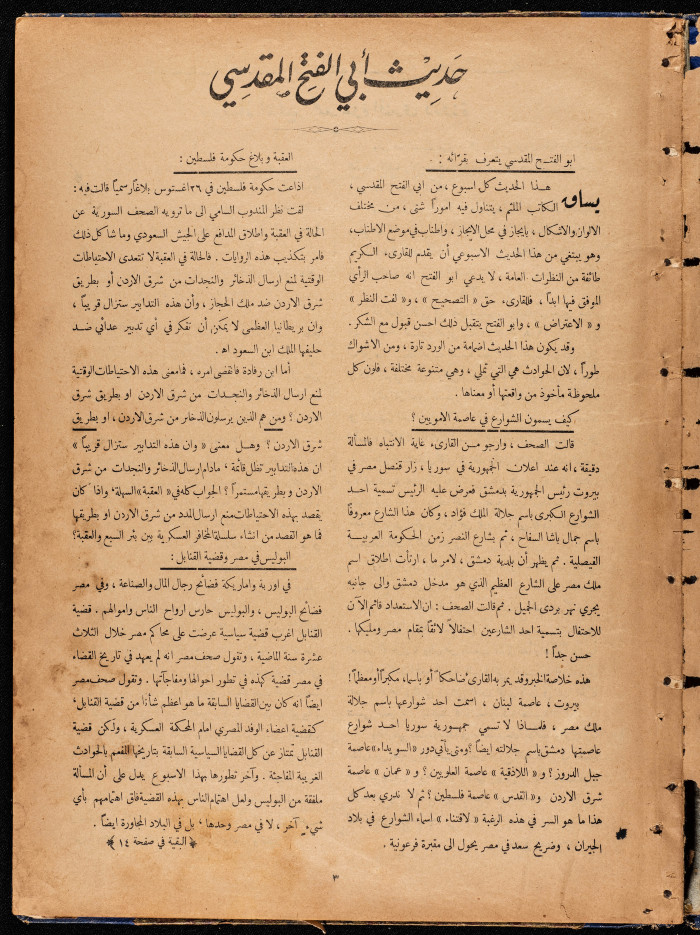 حديث أبي الفتح المقدسي
ابو الفتح المقدسي يتعرف بقرّائه :
يساق هذا الحديث كل اسبوع ، من ابي الفتح المقدسي ،
الكاتب الملثم ، يتناول فيه اموراً شتى ، من مختلف
الالوان والاشكال ، بايجاز في محل الايجاز ، واطناب في موضع الاطناب ،
وهو يبتغي من هذا الحديث الاسبوعي أن يقدم للقارىء الكريم
طائفة من النظرات العامة ، لا يدعي ابو الفتح انه صاحب الرأي
الموفق فيها ابداً ، فللقارىء حق « التصحيح » ، و« لفت النظر »
و « الاعتراض » ، وابو الفتح يتقبل ذلك احسن قبول مع الشكر .
وقد يكون هذا الحديث اضمامة من الورد تارة ، ومن الاشواك
طوراً ، لان الحوادث هي التي تملي ، وهي متنوعة مختلفة ، فلون كل
ملحوظة مأخوذ من واقعتها أو معناها .
كيف يسمون الشوارع في عاصمة الامويين ؟
قالت الصحف ، وارجو من القارىء غاية الانتباه فالمسألة
دقيقة ، انه عند اعلان الجمهورية في سوريا ، زار قنصل مصر في
بيروت رئيس الجمهورية بدمشق فعرض عليه الرئيس تسمية احد
الشوارع الكبرى باسم جلالة الملك فؤاد ، وكان هذا الشارع معروفاً
باسم جمال باشا السفاح ، ثم بشارع النصر زمن الحكومة العربية
الفيصلية . ثم يظهر أن بلدية دمشق ، لامر ما ، ارتأت اطلاق اسم
ملك مصر على الشارع العظيم الذي هو مدخل دمشق والى جانبه
يجري نهر بردى الجميل . ثم قالت الصحف : ان الاستعداد قائم الآن
للاحتفال بتسمية احد الشارعين احتفالاً لائقاً بمقام مصر ومليكها .
حسن جداً !
هذه خلاصة الخبر وقد يمر به القارىء ضاحكاً أو باسماً ، مكبراً أو معظماً !
بيروت ، عاصمة لبنان ، اسمت احد شوارعها باسم جلالة
ملك مصر ، فلماذا لا تسمي جمهورية سوريا احد شوارع
عاصمتها دمشق باسم جلالته ايضاً ؟ ومتى يأتي دور « السويداء » عاصمة
جبل الدروز ؟ و « اللاذقية » عاصمة العلويين ؟ و « عمان » عاصمة
شرق الاردن و « القدس » عاصمة فلسطين ؟ ثم لا ندري بعد كل
هذا ما هو السر في هذه الرغبة « لاقتناء » اسماء الشوارع في بلاد
الجيران ، وضريح سعد في مصر يحول الى مقبرة فرعونية .
العقبة وبلاغ حكومة فلسطين :
اذاعت حكومة فلسطين في ٢٦ اغستوس بلاغاً رسمياً قالت فيه :
لفت نظر المندوب السامي الى ما ترويه الصحف السورية عن
الحالة في العقبة واطلاق المدافع على الجيش السعودي وما شاكل ذلك
فامر بتكذيب هذه الروايات . فالحالة في العقبة لا تتعدى الاحتياطات
الوقتية لمنع ارسال الذخائر والنجدات من شرق الاردن أو بطريق
شرق الاردن ضد ملك الحجاز ، وأن هذه التدابير ستزال قريباً ،
وان بريطانيا العظمى لا يمكن أن تفكر في أي تدبير عدائي ضد
حليفها الملك ابن السعود اه .
أما ابن رفادة فانقضى امره ، فما معنى هذه الاحتياطات الوقتية
لمنع ارسال الذخائر والنجدات من شرق الاردن او بطريق شرق
الاردن ؟ ومن هم الذين يرسلون الذخائر من شرق الاردن ، او بطريق
شرق الاردن ؟ وهل معنى « وان هذه التدابير ستزال قريباً »
ان هذه التدابير تظل قائمة ، ما دام ارسال الذخائر والنجدات من شرق
الاردن وبطريقها مستمراً ؟ الجواب كله في « العقبة » السهلة ، واذا كان
يقصد بهذه الاحتياطات منع ارسال المدد من شرق الاردن او بطريقها
فما هو القصد من انشاء سلسلة المخافر العسكرية بين بئر السبع والعقبة؟
البوليس في مصر وقضية القنابل :
في اوربة واماريكة فضائح رجال المال والصناعة ، وفي مصر
فضائح البوليس ، والبوليس حارس ارواح الناس واموالهم . قضية
القنابل اغرب قضية سياسية عرضت على محاكم مصر خلال الثلاث
عشرة سنة الماضية ، وتقول صحف مصر انه لم يعهد في تاريخ القضاء
في مصر قضية كهذه في تطور احوالها ومفاجآتها . وتقول صحف مصر
ايضاً انه كان بين القضايا السابقة ما هو اعظم شأناً من قضية القنابل ،
كقضية اعضاء الوفد المصري امام المحكمة العسكرية ، ولكن قضية
القنابل تمتاز عن كل القضايا السياسية السابقة بتاريخها المفعم بالحوادث
الغريبة المفاجئة . وآخر تطورها بهذا الاسبوع يدل على أن المسألة
ملفقة من البوليس ولعل اهتمام الناس بهذه القضية فاق اهتمامهم بأي
شيء آخر ، لا في مصر وحدها ، بل في البلاد المجاورة ايضاً .
﴿ البقية في صفحة ١٤ ﴾
٣